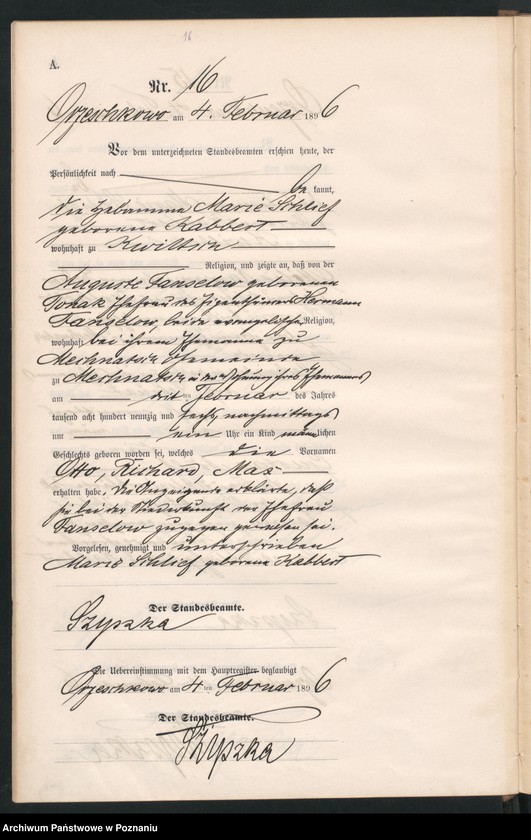 16
A.
Nr. 16
Orzeschkowo am 4. Februar 1896
Vor dem unterzeichneten Standesbeamten erschien heute, der
Persönlichkeit nach
be kannt,
die Hebamme Marie Schlief
geborene Kabbert
wohnhaft zu Kwiltsch
Religion, und zeigte an, daß von der
Auguste Fanselow geborenen
Tonak Ehefrau des Eigenthümers Hermann
Fanselow, beide evangelischer Religion,
wohnhaft bei ihrem Ehemanne zu
Mechnatsch Gemeinde
zu Mechnatsch in der Wohnung ihres Ehemannes
am drit ten Februar des Jahres
tausend acht hundert neunzig und sechs nachmittags
um ein Uhr ein Kind männlichen
Geschlechts geboren worden sei, welches die Vornamen
Otto, Richard, Max
erhalten habe. Die Anzeigende erklärte, daß
sie bei der Niederkunft der Ehefrau
Fanselow zugegen gewesen sei.
Vorgelesen, genehmigt und unterschrieben
Marie Schlief geborene Kabbert
Der Standesbeamte.
Szypzka
Die Uebereinstimmung mit dem Hauptregister beglaubigt
Orzeschkowo am 4 ten Februar 1896
Der Standesbeamte.
Szypzka
Archiwum Państwowe w Poznaniu